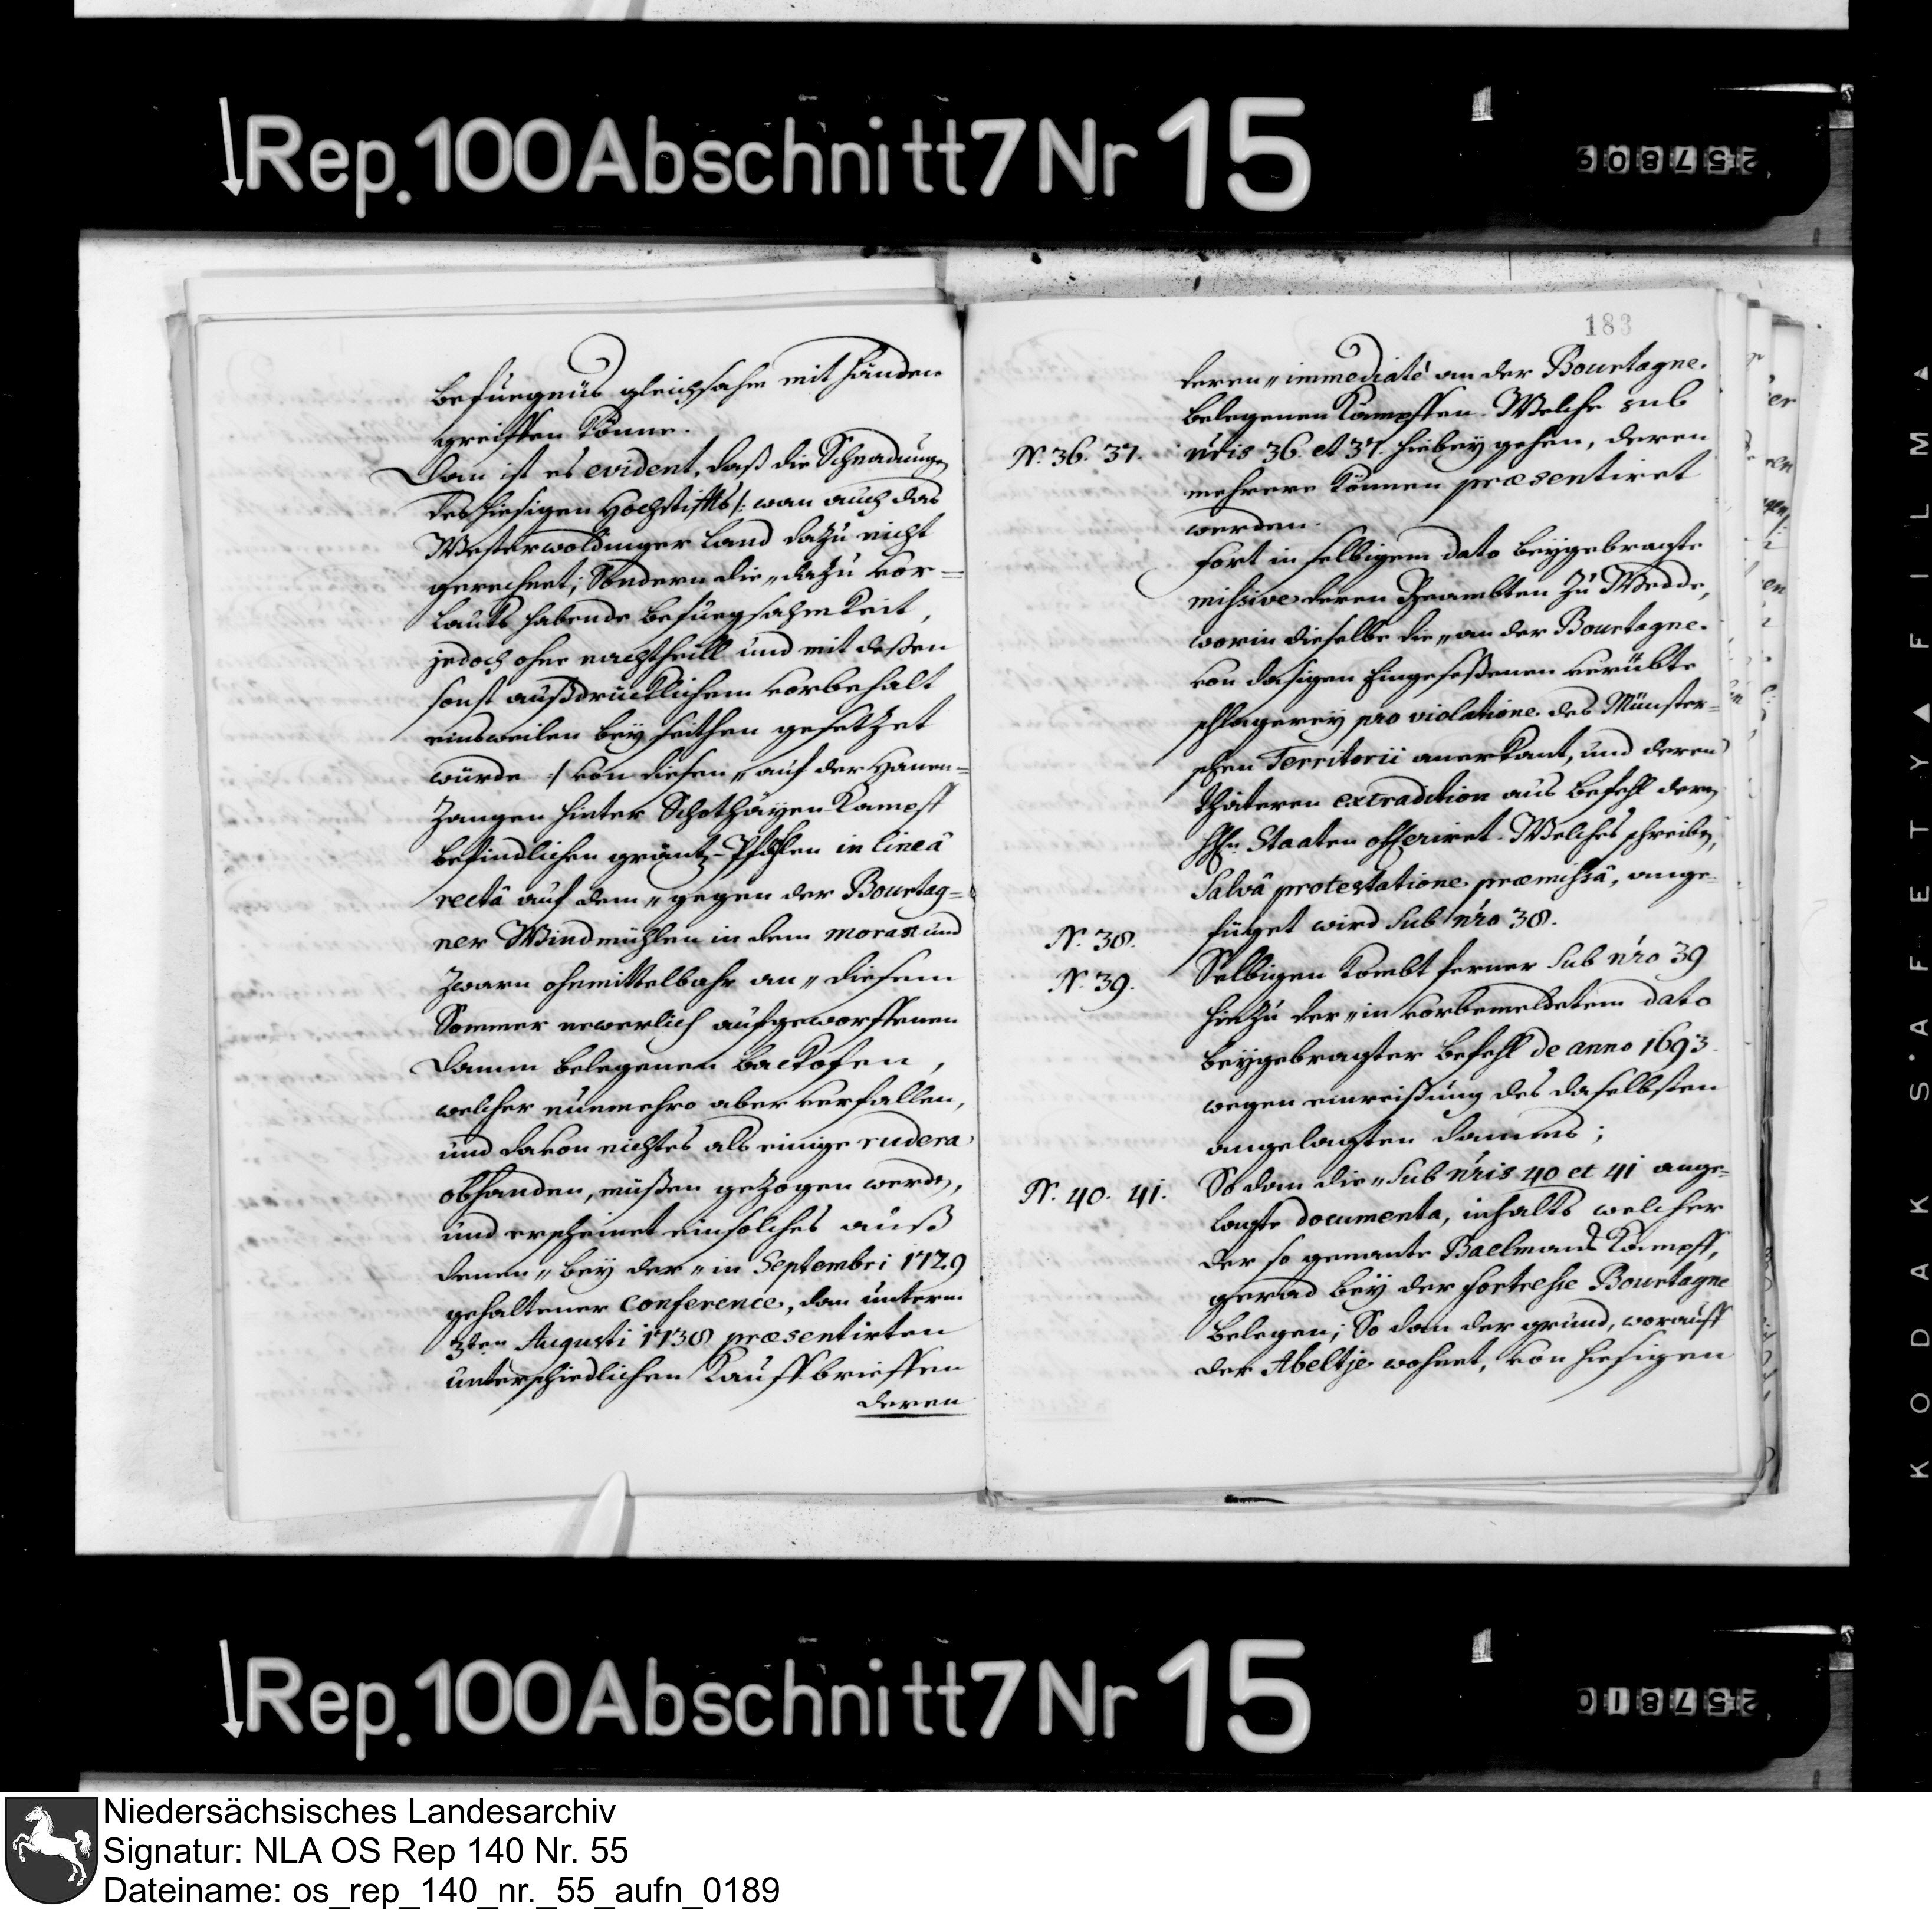 Rep.100Abschnitt7Nr 15
257809
befuegnüs gleichsahm mit händen
greiffen könne.
Dan ist es evident, daß die Schnadung
des hiesigen Hochstiffts /: wan auch das
Westerwoldinger land dazu nicht
gerechnet; Sondern die„ dazu vor=
lauts habende befuegsahmkeit,
jedoch ohne nachtheill und mit deßen
sonst außdrücklichem vorbehalt
einsweilen bey seithen gesetzet
würde :/ von diesen„ auf der Hanen=
zangen hinter Schothäyen Kampff
befindlichen gräntz-Pfählen in lineâ
rectâ auf dem„ gegen der Bourtag=
ner Windmühlen in dem morast und
zwarn ohnmittelbahr an„ diesem
Sommer newerlich aufgeworffenen
Damm belegenen backofen,
welcher nunmehro aber verfallen,
und davon nichtes als einige rudera
obhanden, müßen gezogen werdn,
und erscheinet ein solches auß
denen„ bey der„ in Septembri 1729
gehaltener conference, dan unterm
3ten Augusti 1738 præsentirten
unterschiedlichen Kauffbrieffen
deren
183
deren„ immediatè an der Bourtagne
belegenen Kämpffen. Welche sub
N. 36. 37. nris 36. et 37. hiebey gehen, deren
mehrere können præsentiret
werden.
Fort in selbigem dato beygebragte
missive deren Beambten zu Wedde,
worin dieselbe die„ an der Bourtagne
von dasigen Eingeseßenen verübte
schlagerey pro violatione des Münster=
schen Territorii anerkant, und deren
thäteren extradition aus befehl dern
HHn. Staaten offeriret. Welches schreibn,
Salvâ protestatione præmissâ, ange=
N. 38. füget wird sub nro 38.
N. 39. Selbigen kombt ferner sub nro 39
hinzu der„ in vorbemeldetem dato
beygebragter befehl de anno 1693
wegen einreißung des daselbsten
angelagten Dammes;
N. 40. 41. So dan die„ sub nris 40 et 41 ange=
lagte documenta, inhalts welcher
der so genante Baelmans Kampff,
gerad bey der fortresse Bourtagne
belegen; So dan der grund, worauff
der Abeltje wohnet, von hiesigen
KODAK S.AFETY FILM
Rep.100Abschnitt7Nr 15
257810
Niedersächsisches Landesarchiv
Signatur: NLA OS Rep 140 Nr. 55
Dateiname: os_rep_140_nr._55_aufn_0189